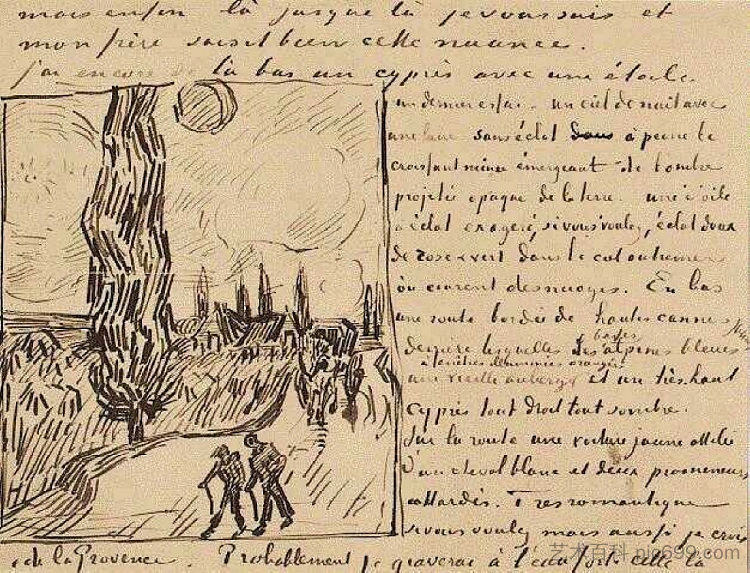 mais enfin là jusque là je vous suis et
mon frère saisit bien cette nuance.
j'ai encore de là bas un cyprès avec une étoile.
un dernier essai - un ciel de nuit avec
une lune sans éclat dans à peine le
croissant mince émergeant de l'ombre
projetée opaque de la terre. une étoile
à éclat exagéré, si vous voulez, éclat doux
de rose & vert dans le ciel outremer
où courent des nuages. En bas
une route bordée de hautes cannes jaunes
derrière lesquelles les basses alpines bleues
à fenêtres illuminées orangé
une vieille auberge et un très haut
cyprès tout droit tout sombre.
Sur la route une voiture jaune attelée
d'un cheval blanc et deux promeneurs
attardés. Très romantique
si vous voulez mais aussi je crois
de la Provence. Probablement je graverai à l'eau forte celle là
艺术百科 pig699.com